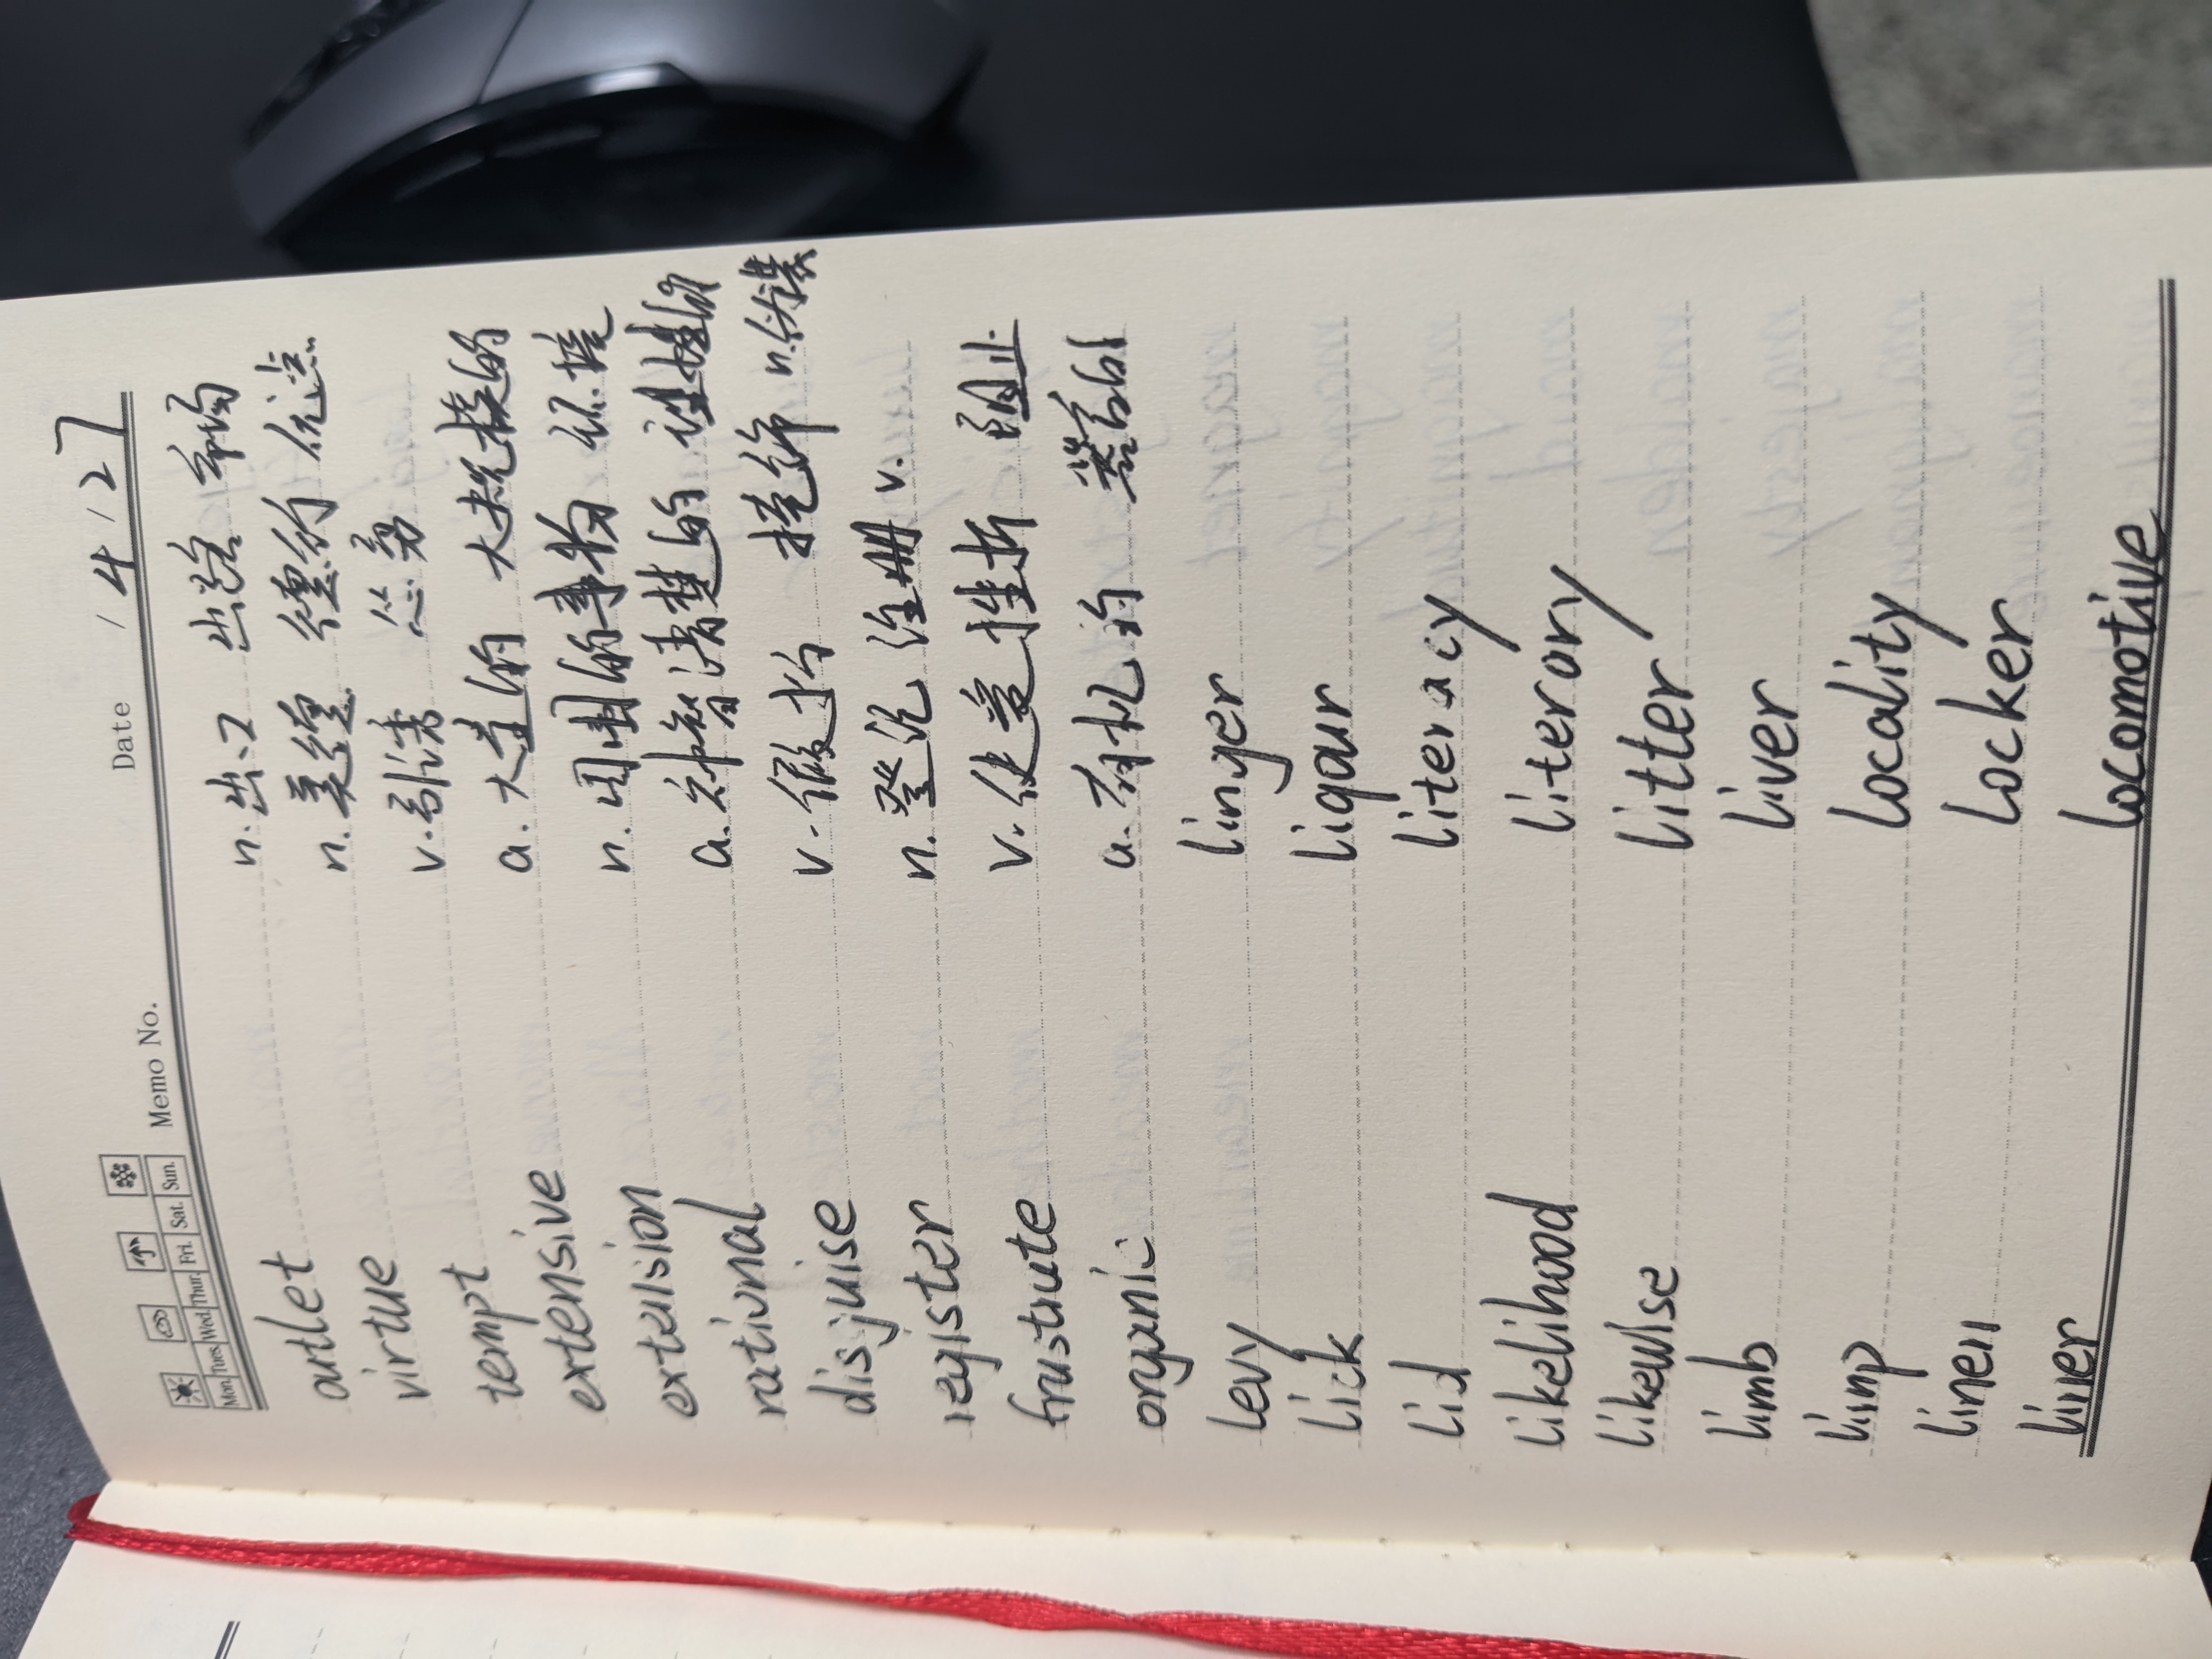 Mon. Tues. Wed. Thur. Fri. Sat. Sun. Memo No. Date / 4 / 27
outlet n. 出口 出路 市场
virtue n. 美德 德行 优点
tempt v. 引诱 怂勇
extensive a. 大量的 大规模的
extension n. 周围的事物 环境
rational a. 神智清楚的 理性的
disguise v. 假扮 掩饰 n. 伪装
register n. 登记 注册 v.
frustrate v. 使受挫折 阻止
organic a. 有机的
levy linger
lick liqour
lid literacy
likelihood literory
likewise litter
limb liver
limp locality
linen locker
liner locomotive